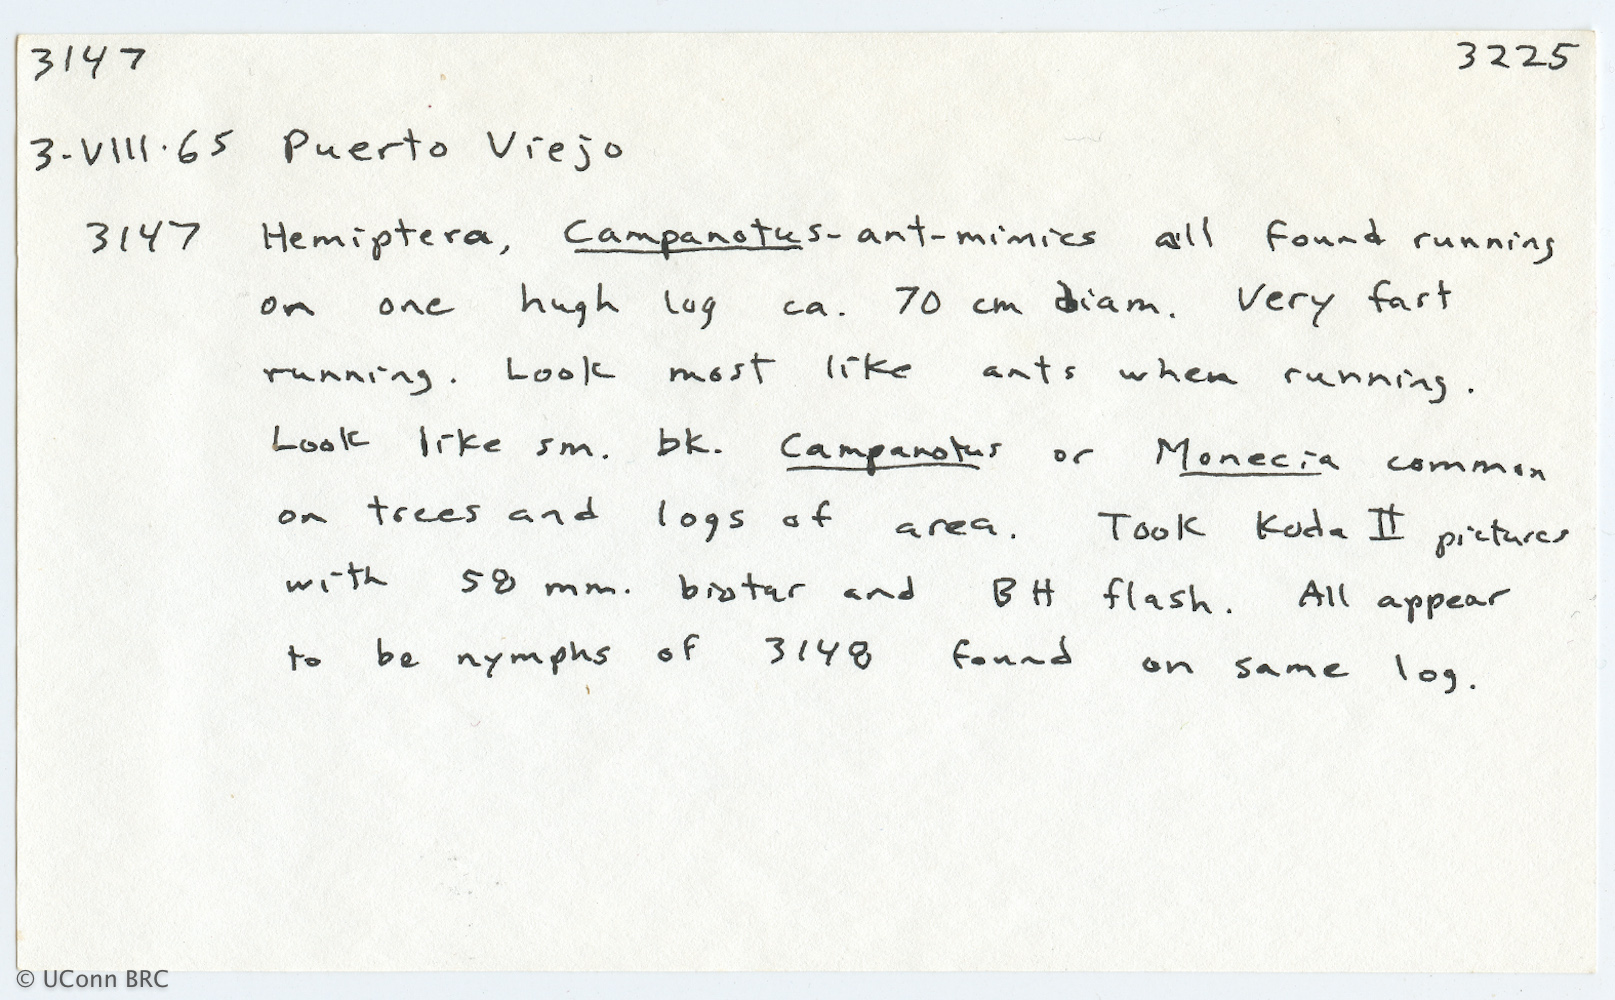 3147 3225
3-VIII-65 Puerto Viejo
3147 Hemiptera, Campanotus-ant-mimics all found running
on one hugh log ca. 70 cm diam. Very fast
running. Look most like ants when running.
Look like sm. bk. Campanotus or Monecia common
on trees and logs of area. Took Koda II pictures
with 58 mm. biotar and BH flash. All appear
to be nymphs of 3148 found on same log.
© UConn BRC